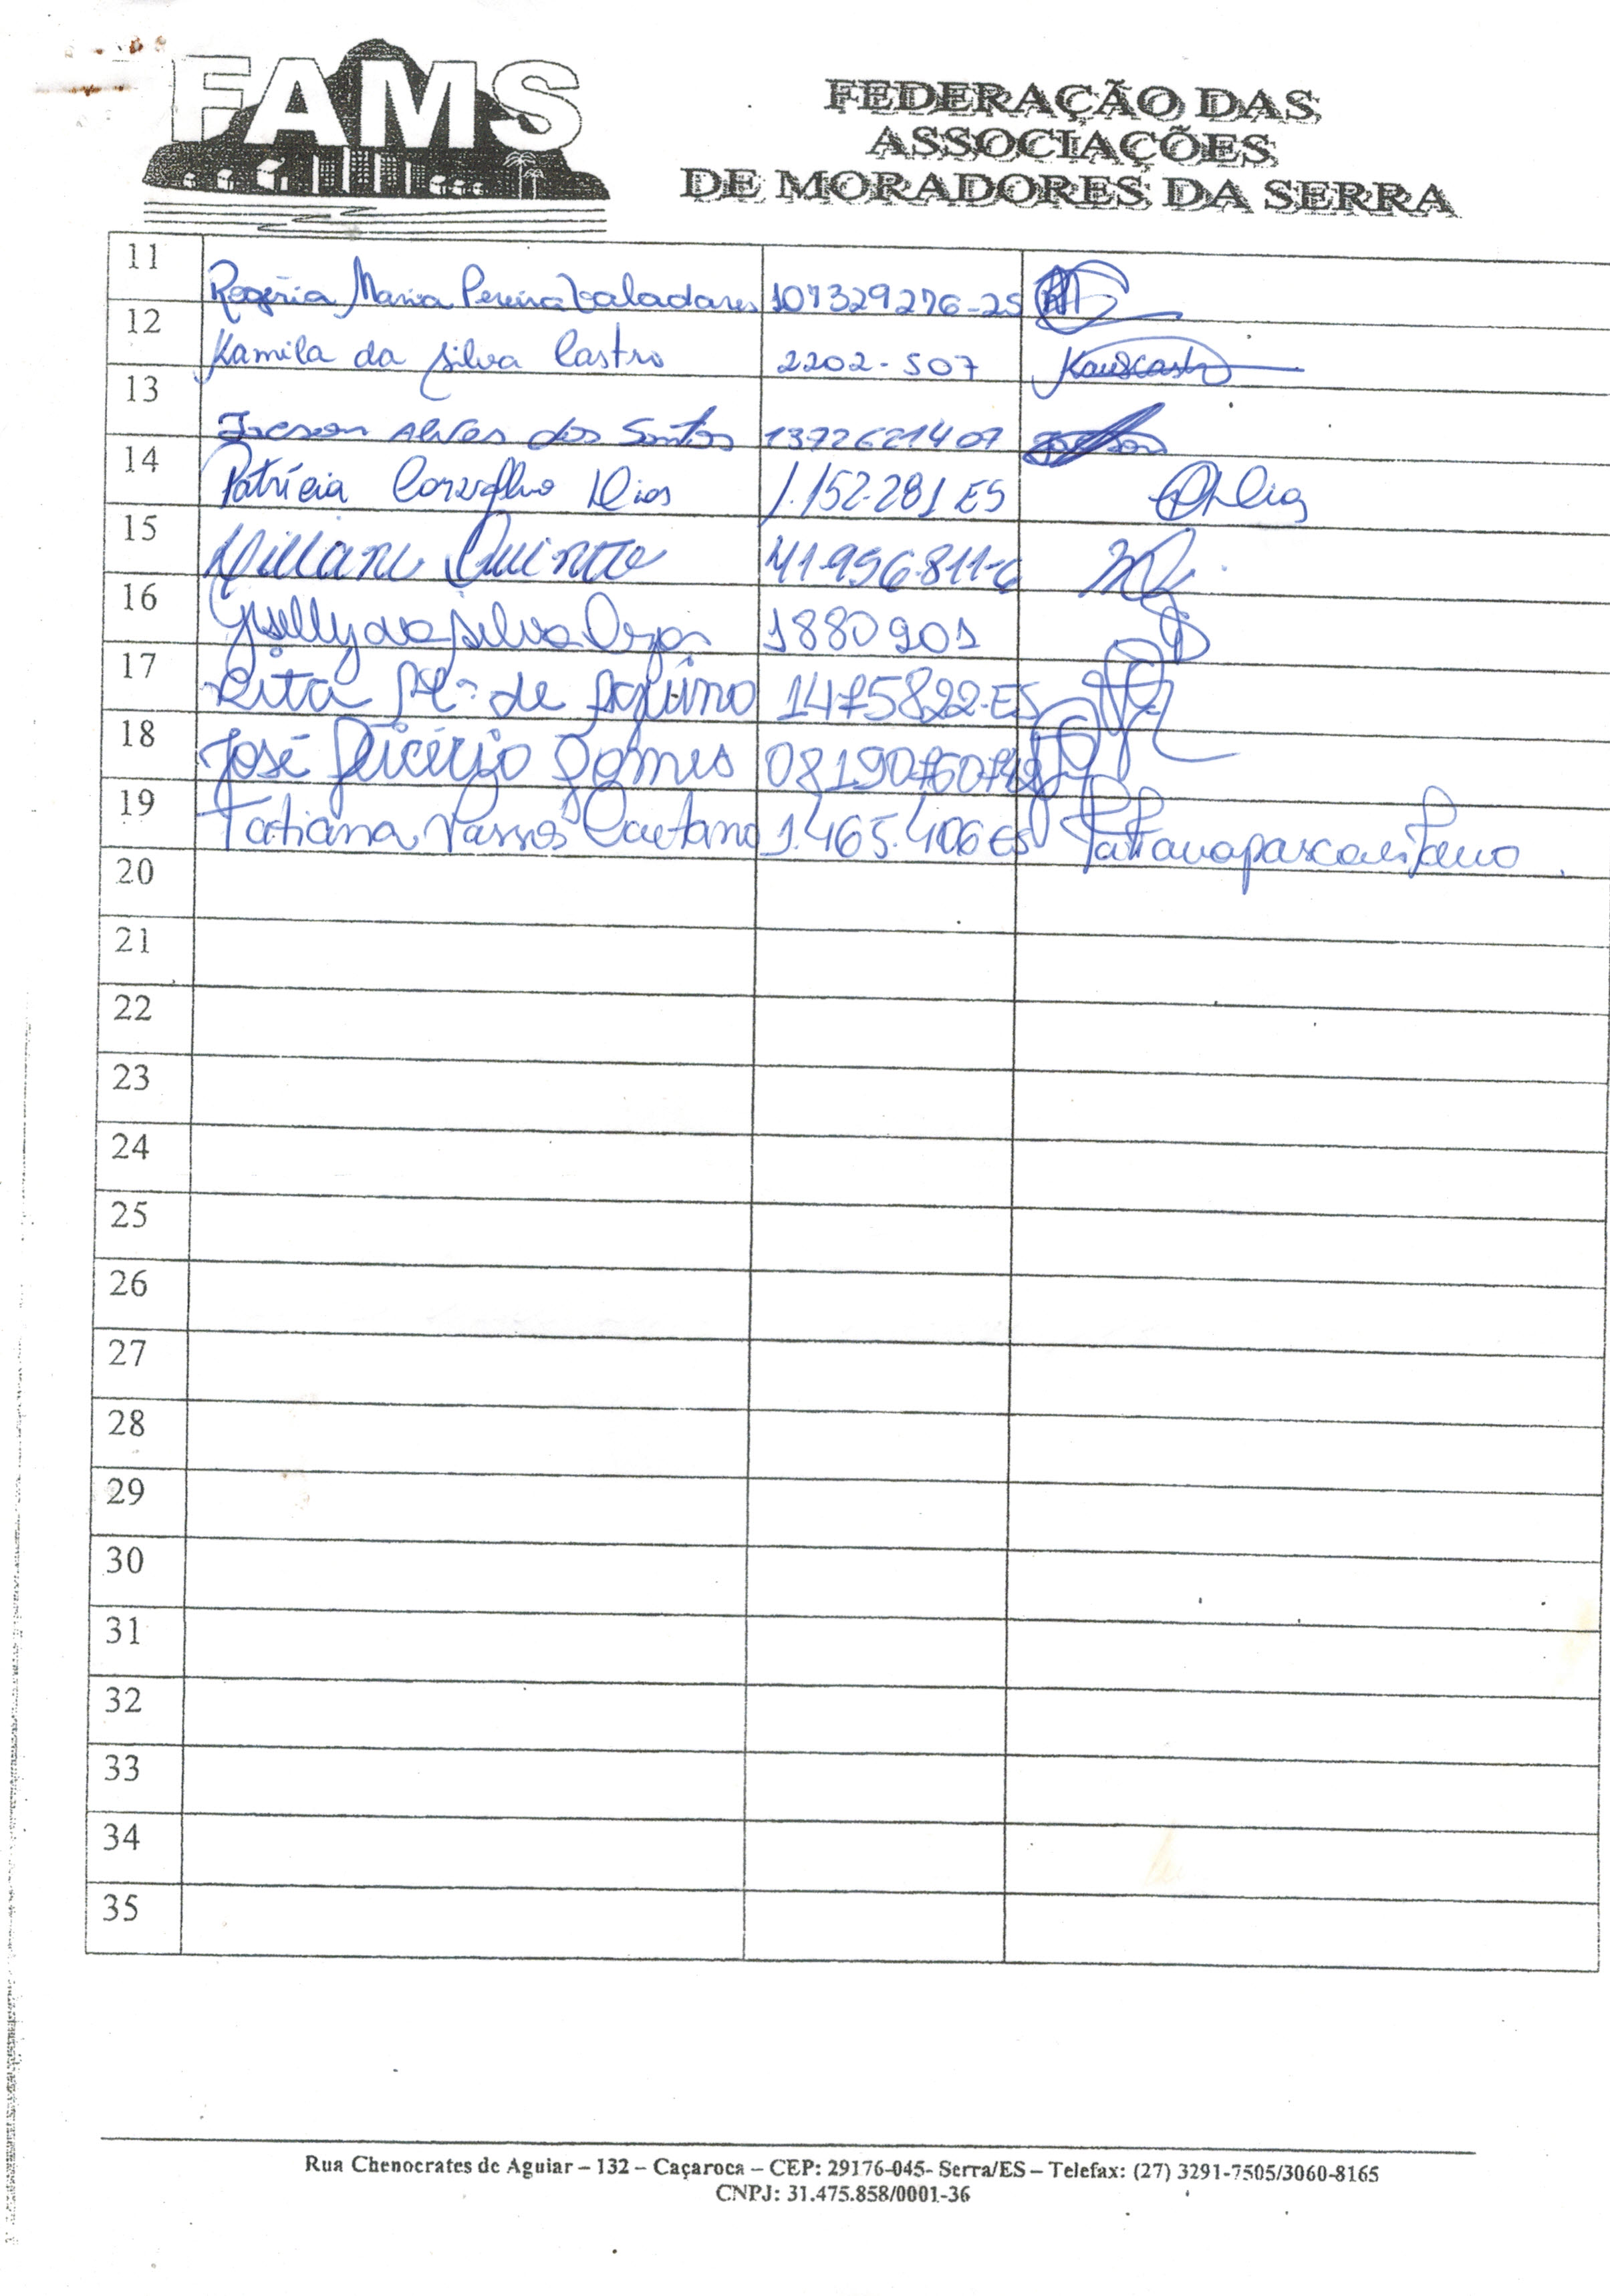 FAMS
FEDERAÇÃO DAS
ASSOCIAÇÕES
DE MORADORES DA SERRA
11 Rogéria Maria Pereira Valadares 107329276-25
12 Kamila da Silva Castro 2202-507
13 Alves dos Santos 13726621407
14 Patrícia Carvalho Dias 1.152.281 ES
15 41.996.811-6
16 da Silva 1880901
17 Rita Mª de Aquino 1475822-ES
18 José Gomes
19 Tatiana Passos Caetano 1.465.406 ES
20
21
22
23
24
25
26
27
28
29
30
31
32
33
34
35
Rua Chenocrates de Aguiar – 132 – Caçaroca – CEP: 29176-045- Serra/ES – Telefax: (27) 3291-7505/3060-8165
CNPJ: 31.475.858/0001-36